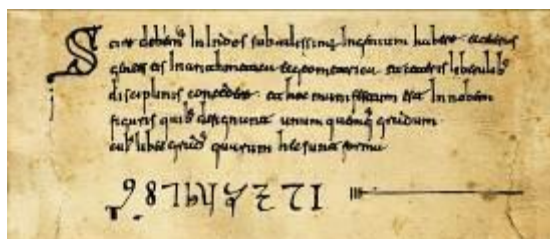 Scire debemus in Indos subtilissimum ingenium habere et ceteras
gentes eis in arithmetica et geometrica et ceteris liberalibus
disciplinis concedere et hoc manifestum est in nobem
figuris quibus designant unum quemque gradum
cuiuslibet gradus quarum hec sunt forma
9 8 7 6 5 4 3 2 1